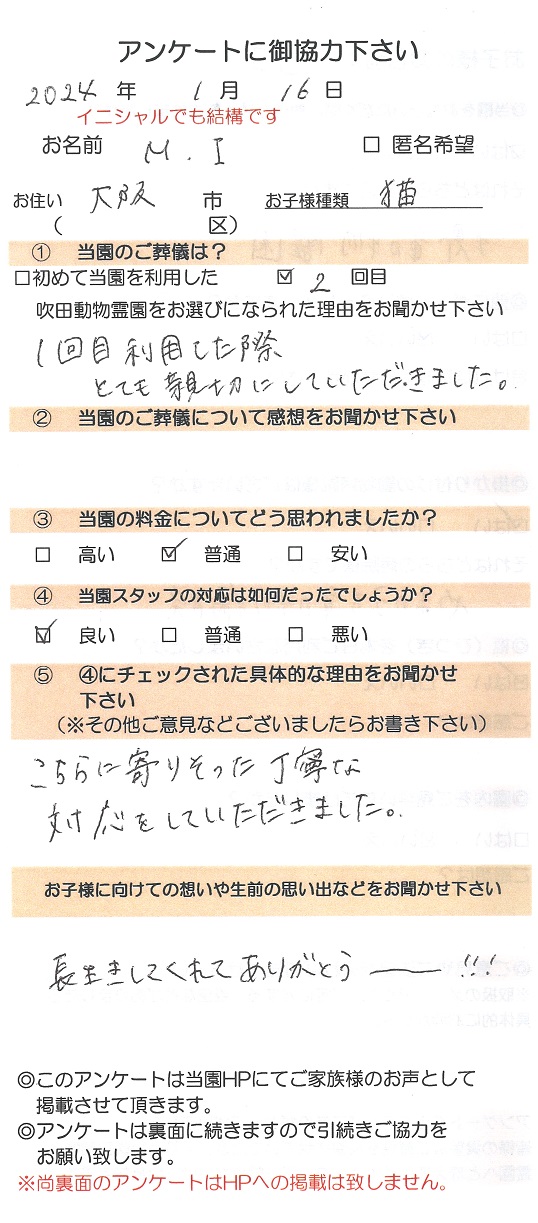 アンケートに御協力下さい
2024 年 1 月 16 日
イニシャルでも結構です
お名前 M.I □ 匿名希望
お住い 大阪 市 お子様種類 猫
( 区)
① 当園のご葬儀は？
□初めて当園を利用した ☑ 2 回目
吹田動物霊園をお選びになられた理由をお聞かせ下さい
1回目利用した際
とても親切にしていただきました。
② 当園のご葬儀について感想をお聞かせ下さい
③ 当園の料金についてどう思われましたか？
□ 高い ☑ 普通 □ 安い
④ 当園スタッフの対応は如何だったでしょうか？
☑ 良い □ 普通 □ 悪い
⑤ ④にチェックされた具体的な理由をお聞かせ
下さい
（※その他ご意見などございましたらお書き下さい）
こちらに寄りそった丁寧な
対応をしていただきました。
お子様に向けての想いや生前の思い出などをお聞かせ下さい
長生きしてくれてありがとうー!!!
◎このアンケートは当園HPにてご家族様のお声として
掲載させて頂きます。
◎アンケートは裏面に続きますので引続きご協力を
お願い致します。
※尚裏面のアンケートはHPへの掲載は致しません。